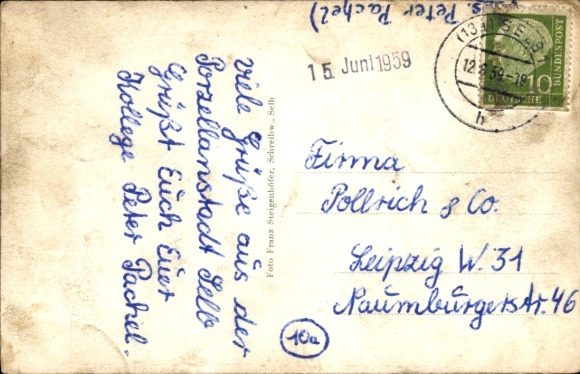 Viele Grüße aus der
Porzellanstadt Selb
Grüßt Euch Euer
Kollege Peter Pachel.
Peter Pachel)
15. Juni 1959
(13a) SELB
12.6.59-18
h
10
DEUTSCHE
BUNDESPOST
Foto Franz Steigenhöfer, Schreibw., Selb
Firma
Pollrich & Co.
Leipzig W. 31
Naumburgerstr. 46
10a